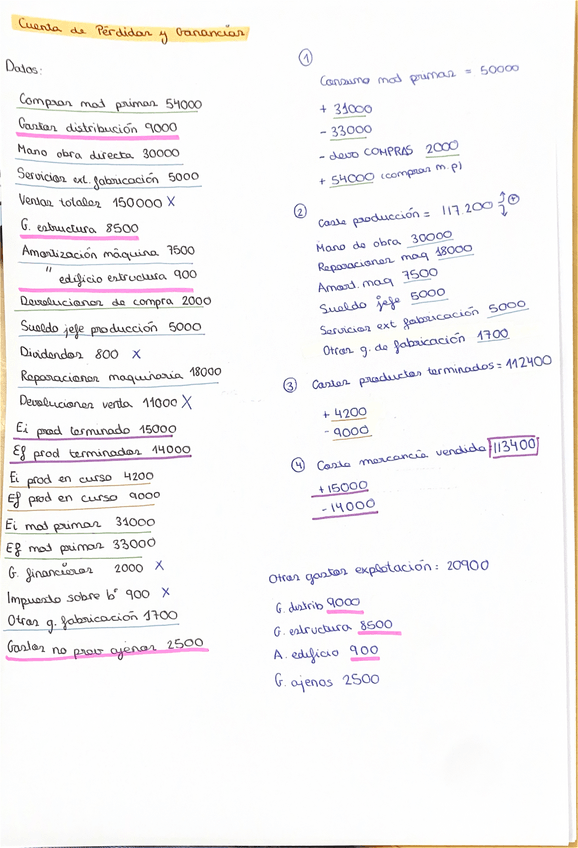 Cuenta de Pérdidas y Ganancias
Datos:
Compras mat primas 54000
Gastos distribución 9000
Mano obra directa 30000
Servicios ext. fabricación 5000
Ventas totales 150000 X
G. estructura 8500
Amortización máquina 7500
" edificio estructura 900
Devoluciones de compra 2000
Sueldo jefe producción 5000
Dividendos 800 X
Reparaciones maquinaria 18000
Devoluciones venta 11000 X
Ei prod terminado 15000
Ef prod terminados 14000
Ei prod en curso 4200
Ef prod en curso 9000
Ei mat primas 31000
Ef mat primas 33000
G. financieros 2000 X
Impuesto sobre bº 900 X
Otros g. fabricación 1700
Gastos no prov ajenos 2500
① Consumo mat primas = 50000
+ 31000
- 33000
- devo COMPRAS 2000
+ 54000 (compras m.p)
② Coste producción = 117.200 +
Mano de obra 30000
Reparaciones maq 18000
Amort. maq 7500
Sueldo jefe 5000
Servicios ext fabricación 5000
Otros g. de fabricación 1700
③ Costes productos terminados = 112400
+ 4200
- 9000
④ Coste mercancía vendida 113400
+ 15000
- 14000
Otros gastos explotación: 20900
G. distrib 9000
G. estructura 8500
A. edificio 900
G. ajenos 2500